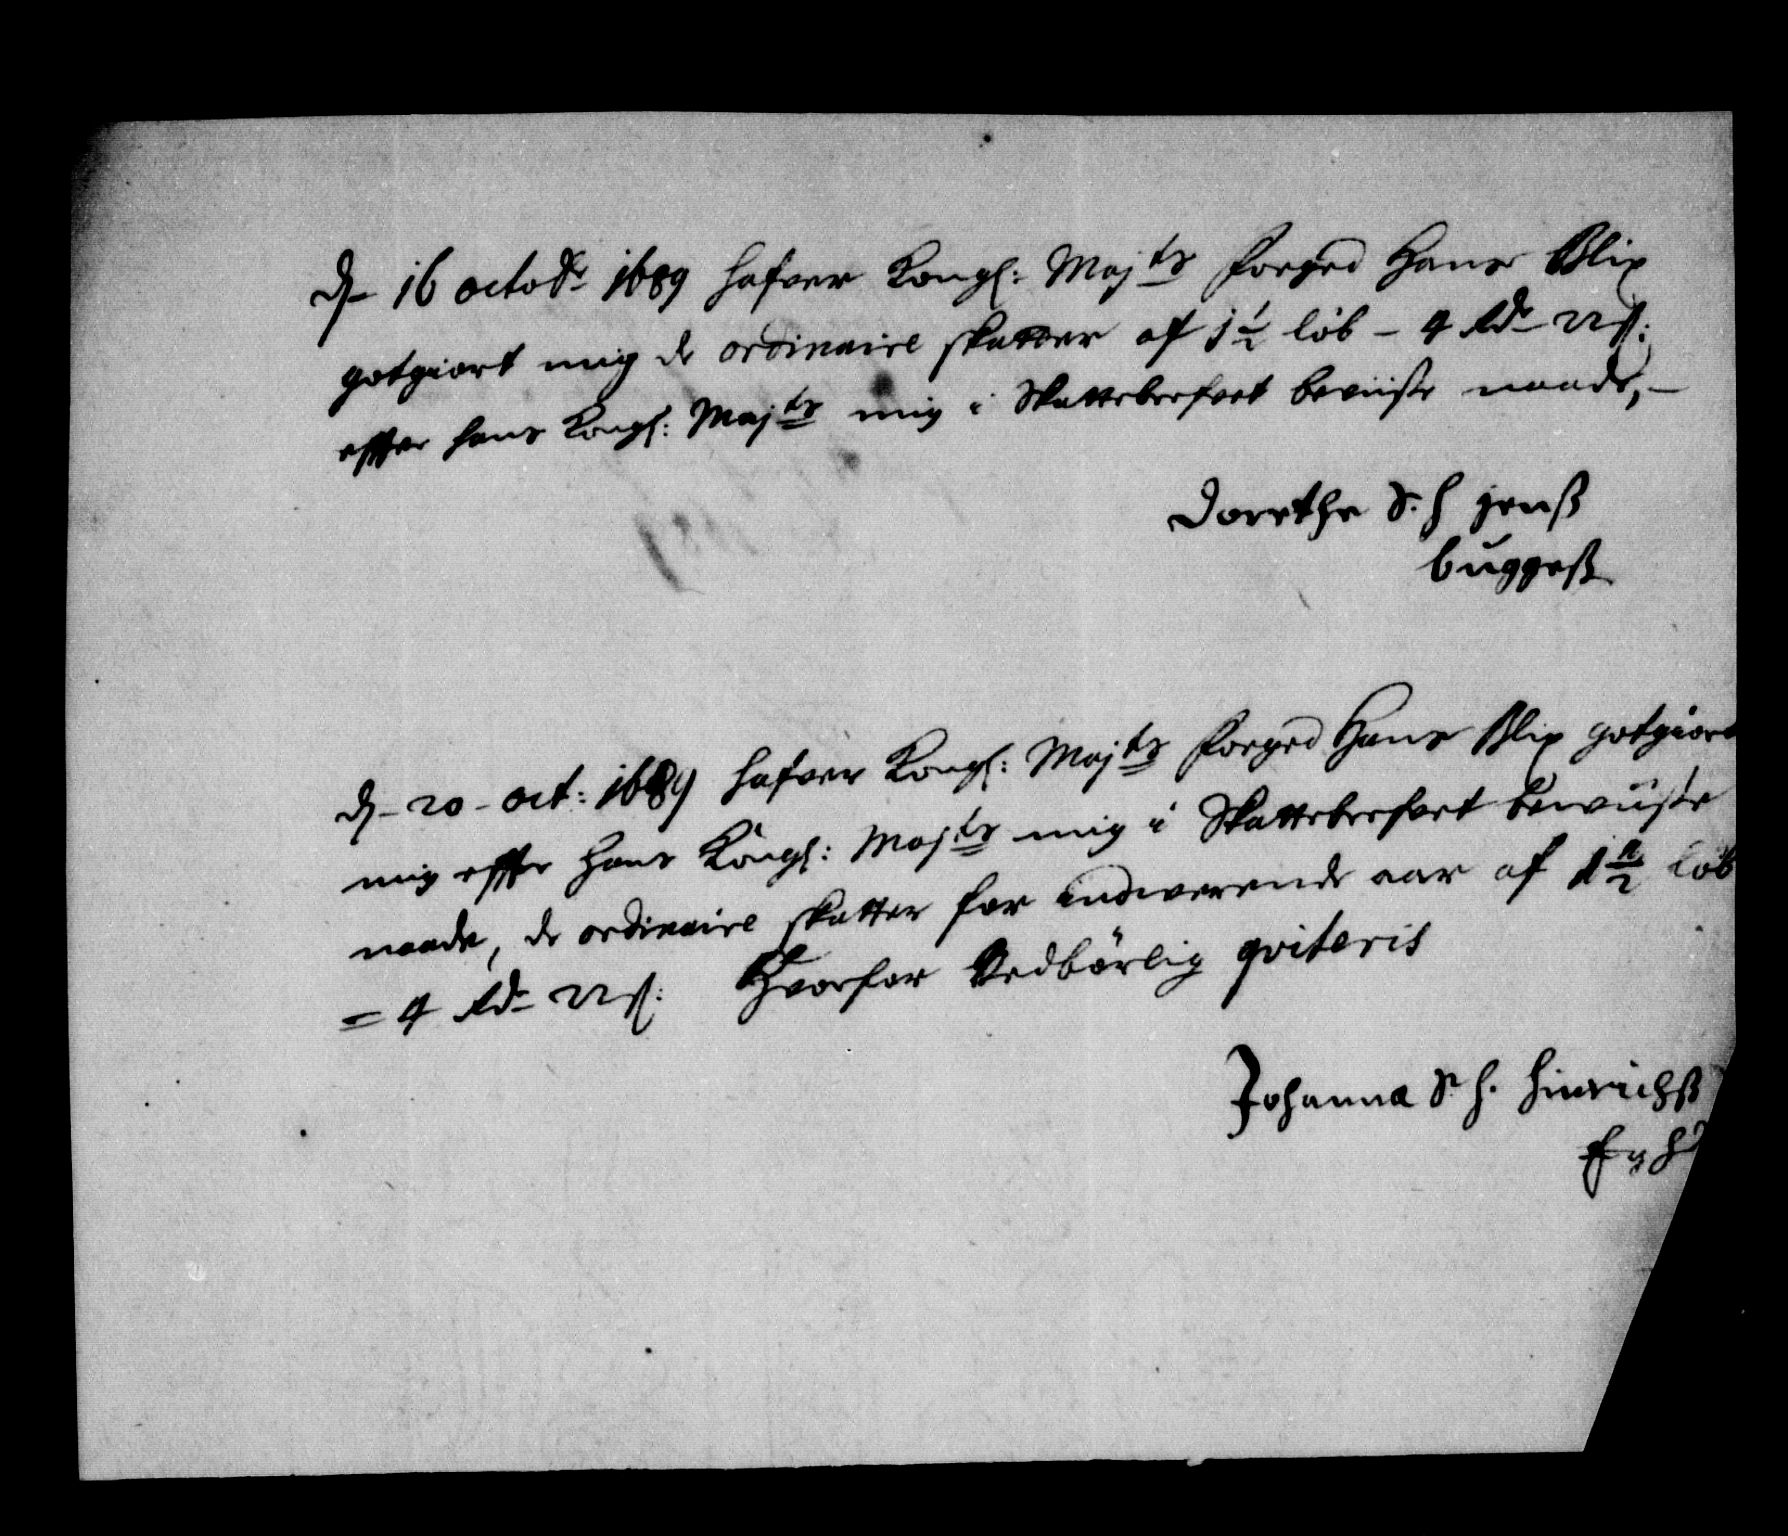 dn 16 octobr 1689 hafver Kongl: Majts foeged Hans Blix
gotgiort mig de ordinaire skatter af 1½ løb – 4 Rdr 22 ß:
effter hans Kongl: Majts mig i Skattebrefvet beviiste naade,
Dorethe S. H Jenß
buggeß
dn 20 oct: 1689 hafver Kongl: Majts foeged Hans Blix gotgiort
mig effter Hans Kongl: Majts mig i Skattebrefvet bewiiste
naade, de ordinaire skatter for indwerende aar af 1½ løb
= 4 Rdr 22 ß: Hvorfor Vedbørlig qviteris
Johanna S. H. Hinrichß